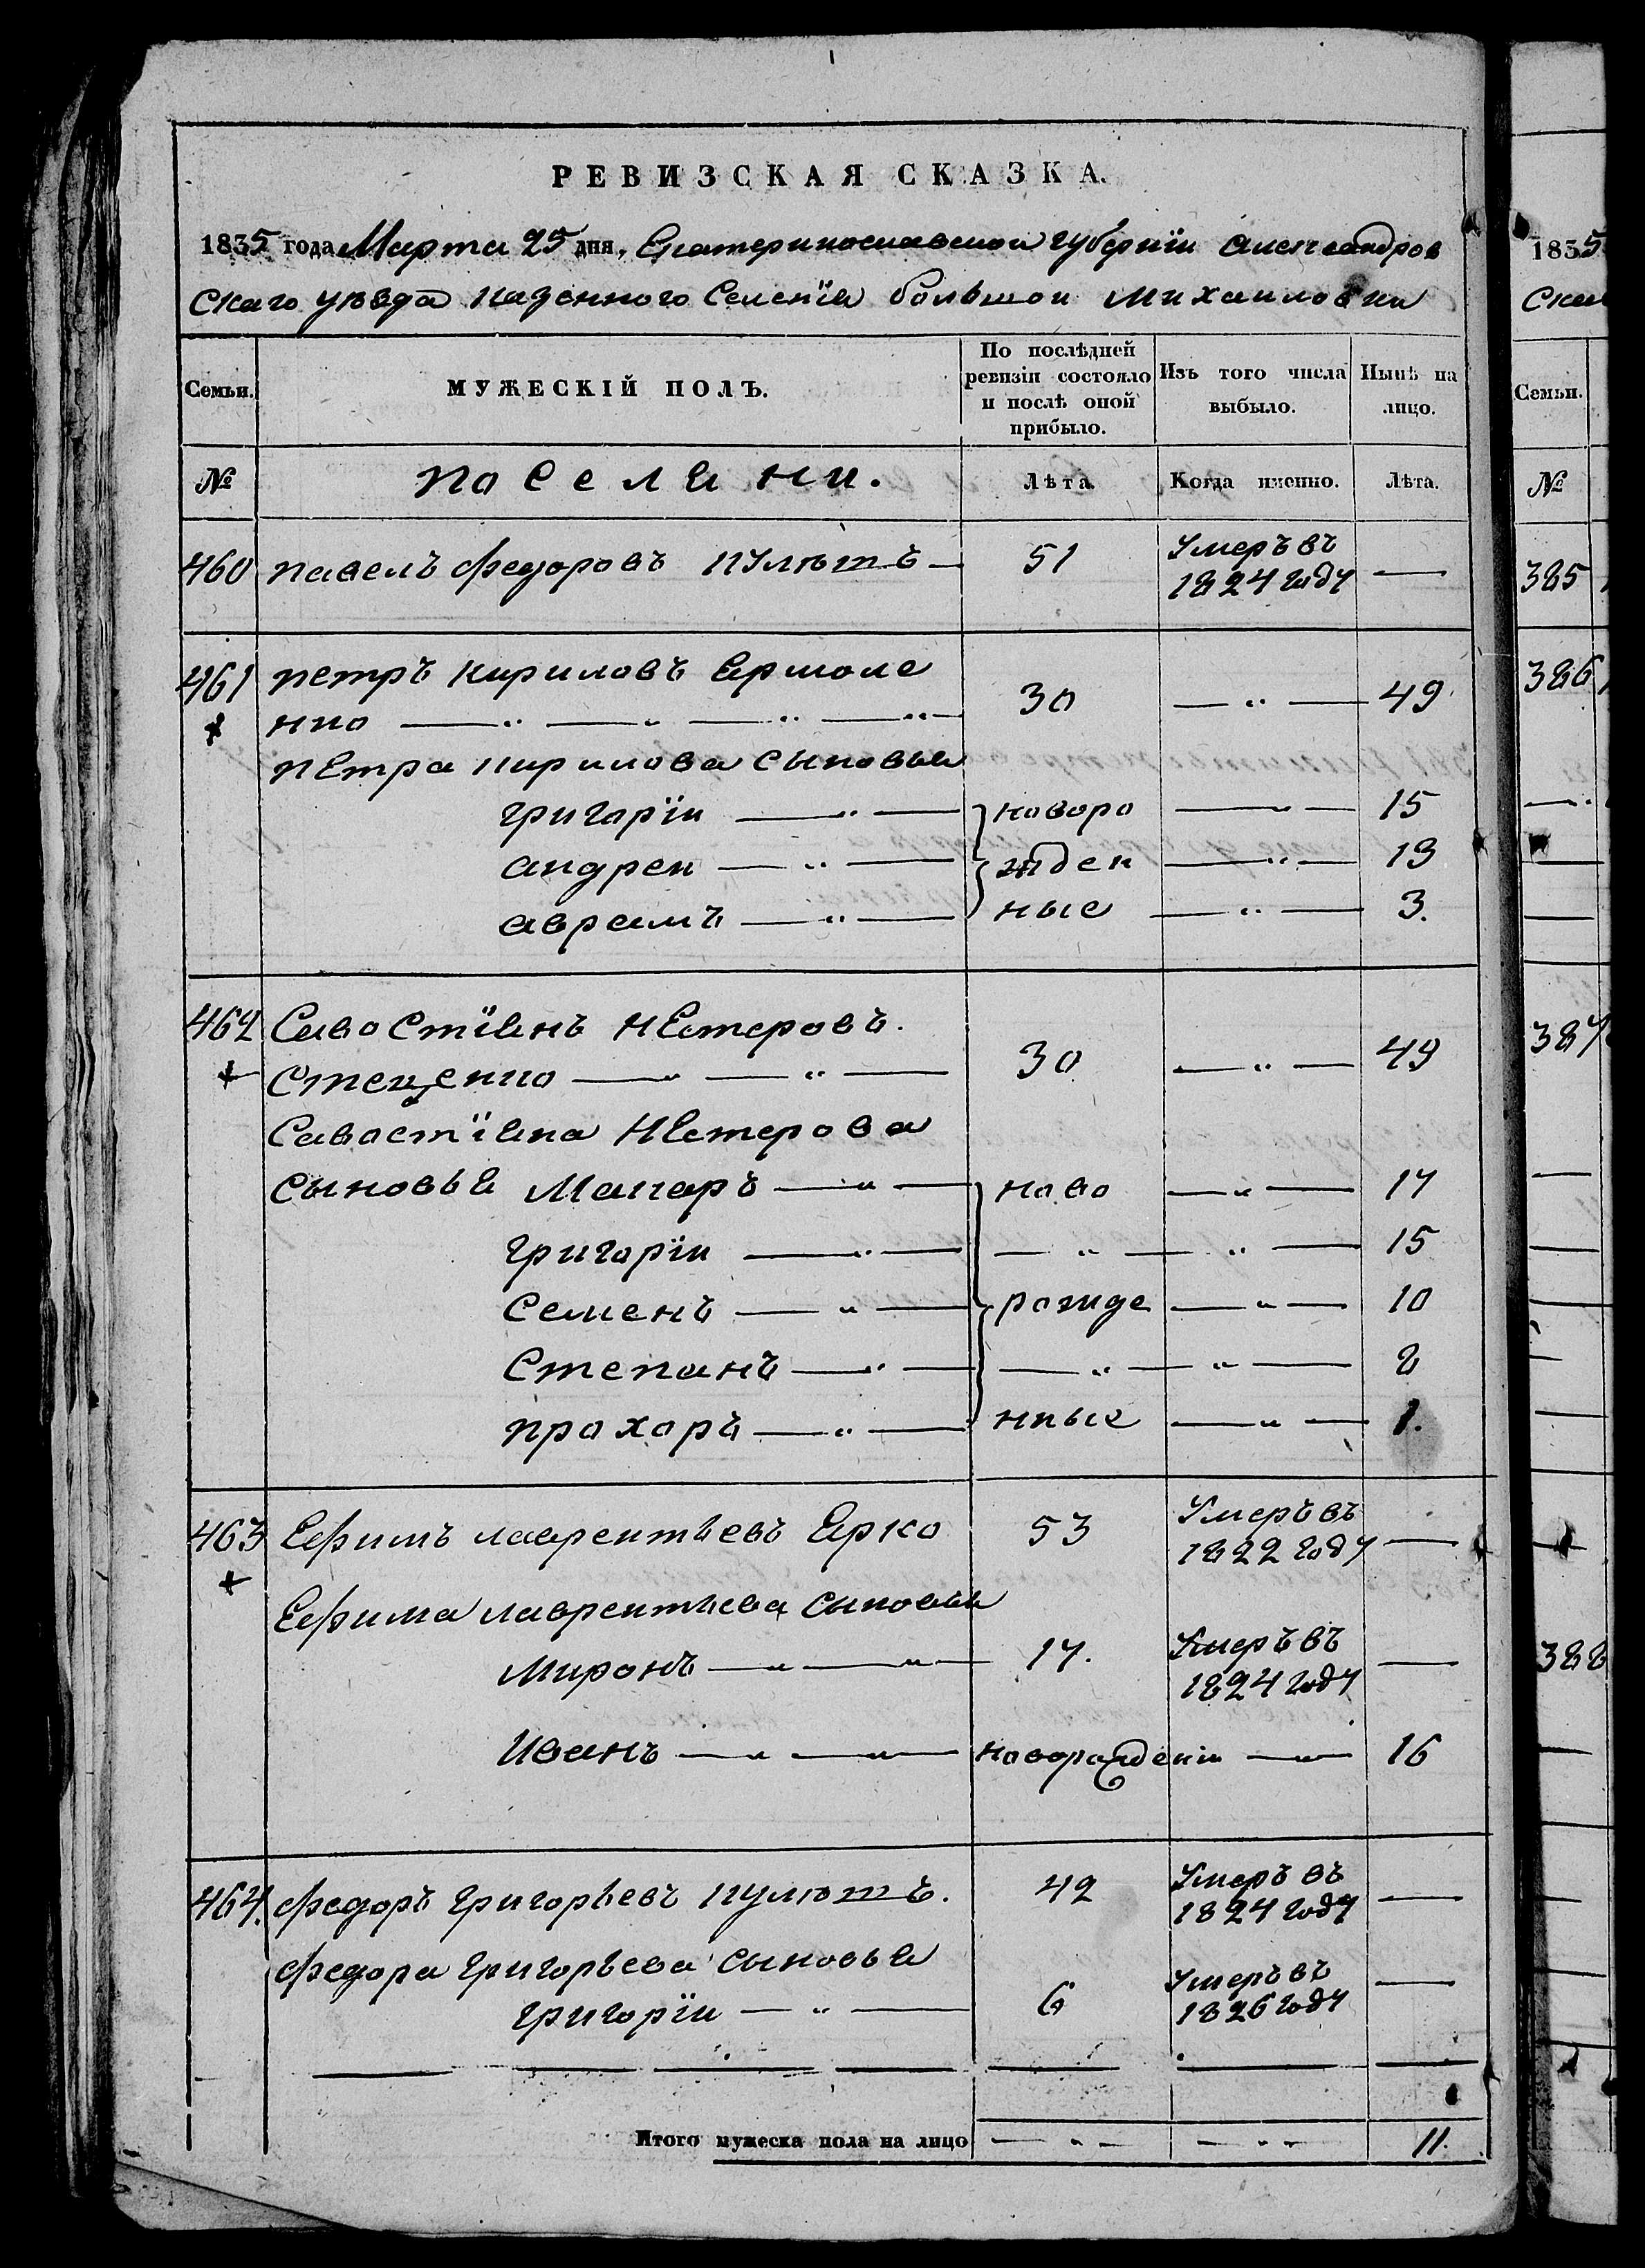 РЕВИЗСКАЯ СКАЗКА.
1835 года Марта 25 дня, Екатеринославской губернїи Александров
скаго уезда казенного селенїя большой Михайловки
Семьи.
МУЖЕСКІЙ ПОЛЪ.
По послѣдней ревизіи состояло и послѣ оной прибыло.
Изъ того числа выбыло.
Нынѣ на лицо.
№
поселяни.
Лѣта.
Когда именно.
Лѣта.
460 павелъ федоровъ кулютъ — 51 Умеръ въ 1824 году —
461 петръ кириловъ Ермоле
нко — „ — „ — „ — „ — 30 — „ — 49
петра кирилова сыновья
григорїи — „ — новоро — „ — 15
андреи — „ — жден — „ — 13
аврамъ — „ — ные — „ — 3.
462 Савостїянъ нестеровъ.
Стеценко — „ — „ — 30 — „ — 49
Савастїяна нестерова
сыновья Макаръ — „ — ново — „ — 17
григорїи — „ — „ — „ — 15
семенъ — „ — рожде — „ — 10
степанъ — „ — „ — „ — 8
прохоръ — „ — нные — „ — 1.
463 Ефимъ лаврентьевъ Ярко 53 Умеръ въ 1822 году —
Ефима лаврентьева сыновья
миронъ — „ — „ — 17. Умеръ въ 1824 году —
Иванъ — „ — „ — новорождени — „ — 16
464. федоръ григорьевъ кулютъ. 42 Умеръ въ 1824 году —
федора григорьева сыновья
григорїи — „ — 6 Умеръ въ 1826 году —
Итого мужеска пола на лицо — „ — — „ — 11.
1835
Скаг
Семьи.
№
385
386
387
388